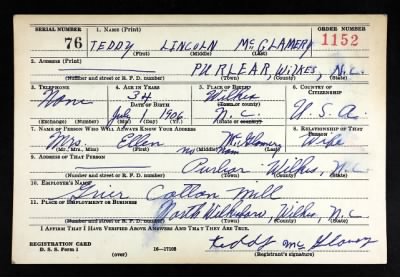 SERIAL NUMBER 1. NAME (Print) ORDER NUMBER
76 TEDDY LINCOLN McGLAMERY 1152
(First) (Middle) (Last)
2. ADDRESS (Print)
PURLEAR, WILKES, N.C.
(Number and street or R. F. D. number) (Town) (County) (State)
3. TELEPHONE 4. AGE IN YEARS 5. PLACE OF BIRTH 6. COUNTRY OF CITIZENSHIP
None 34 Wilkes
DATE OF BIRTH (Town or county)
July 1906 N.C. U.S.A.
(Exchange) (Number) (Mo.) (Day) (Yr.) (State or country)
7. NAME OF PERSON WHO WILL ALWAYS KNOW YOUR ADDRESS 8. RELATIONSHIP OF THAT PERSON
Mrs. Ellen no name McGlamery Wife
(Mr., Mrs., Miss) (First) (Middle) (Last)
9. ADDRESS OF THAT PERSON
Purlear Wilkes, N.C
(Number and street or R. F. D. number) (Town) (County) (State)
10. EMPLOYER'S NAME
Grier Cotton Mill
11. PLACE OF EMPLOYMENT OR BUSINESS
North Wilkesboro, Wilkes, N.C
(Number and street or R. F. D. number) (Town) (County) (State)
I AFFIRM THAT I HAVE VERIFIED ABOVE ANSWERS AND THAT THEY ARE TRUE.
REGISTRATION CARD
D. S. S. Form 1 16—17105 Teddy McGlamery
(over) (Registrant's signature)